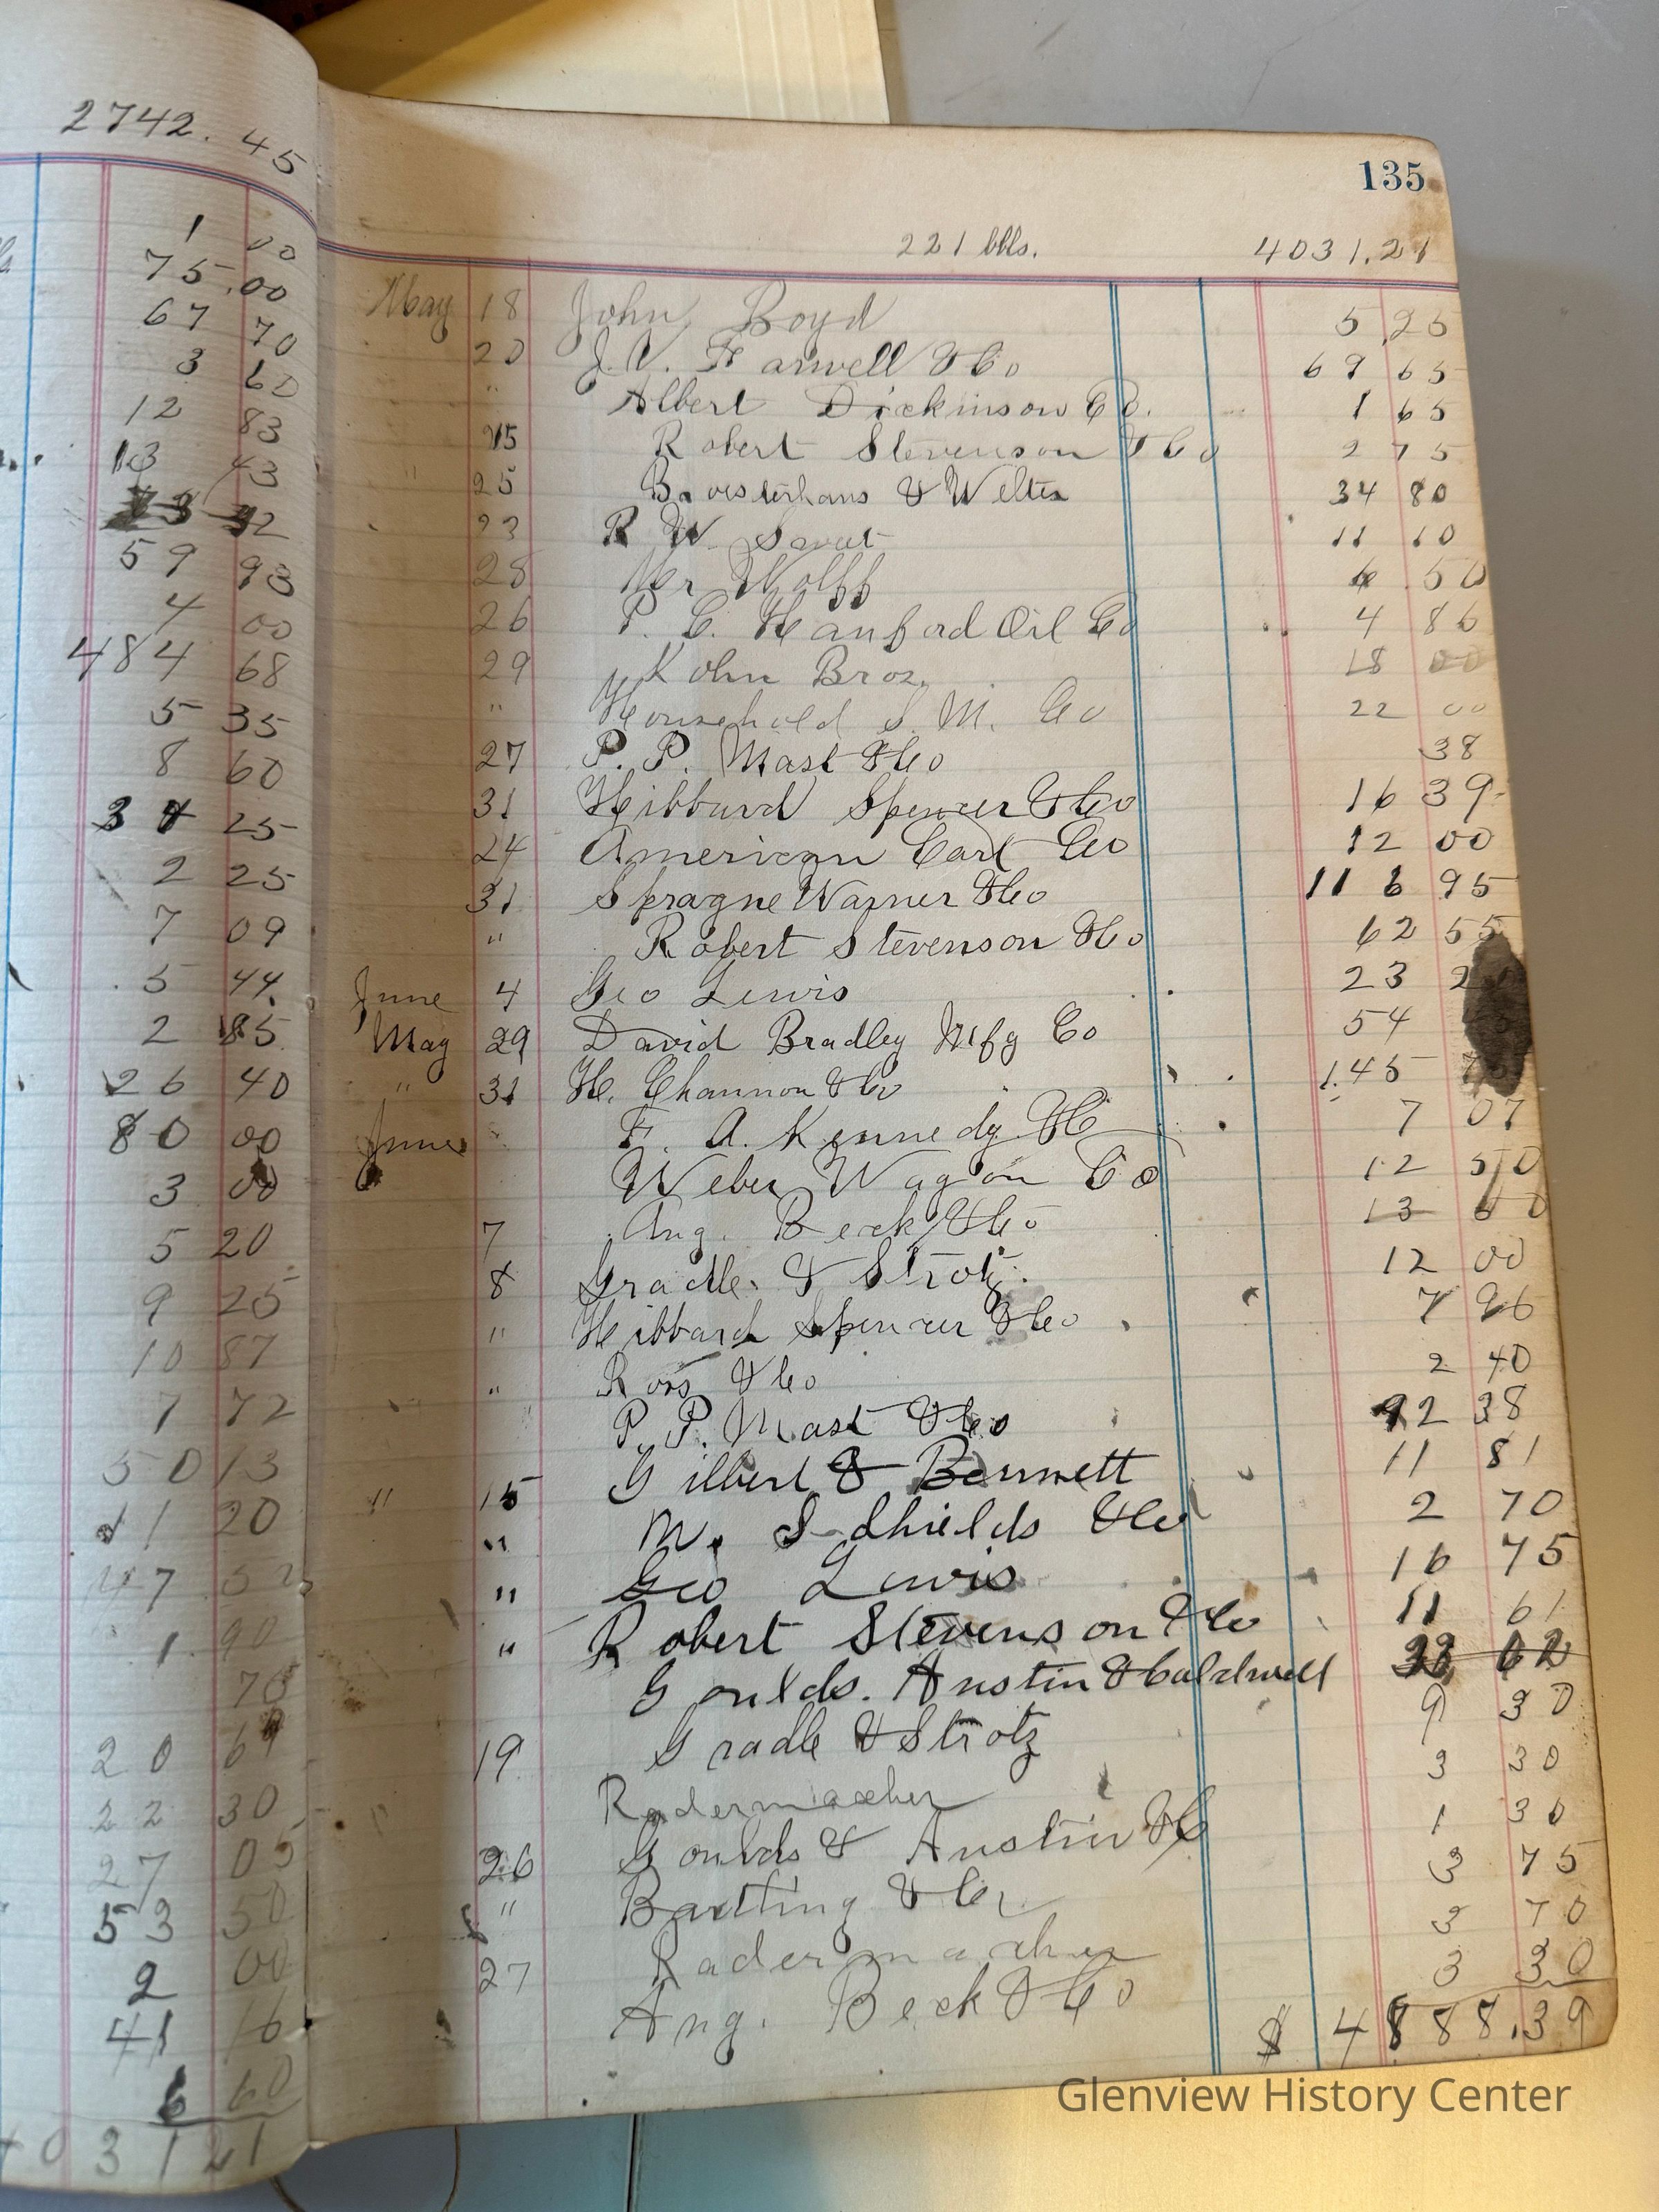 2742.45
1 00
75.00
67 70
3 60
12 83
13 43
59 93
4 00
484 68
5 35
8 60
25
2 25
7 09
5 44
2 85
26 40
80 00
3 00
5 20
9 25
10 87
7 72
50 13
11 20
47
1. 90
70
20 69
22 30
27 05
53 50
2 00
41 16
6 60
4031 21
135
221 bbls. 4031.21
May 18 John Boyd 5 25
20 J. V. Farwell & Co 69 65
" Albert Dickinson Co. 1 65
Robert Stevenson & Co 2 75
" 25 & Weltes 34 80
23 R W 11 10
28 Mr Wolff 6 50
26 P. C. Hanford Oil Co 4 86
29 Kohn Bros. 18 00
" Household S. M. Co 22 00
27 P. P. Mast & Co 38
31 Hibbard Spencer & Co 16 39
24 American Card Co 12 00
31 Sprague Warner & Co 116 95
" Robert Stevenson & Co 62 55
June 4 Geo Lewis 23
May 29 David Bradley Mfg Co 54
" 31 H. Channon & Co 1.45
June F. A. Kennedy & C 7 07
Weber Wagon Co 12 50
7 Aug. Beck & Co 13 60
8 Gradle & Strotz. 12 00
" Hibbard Spencer & Co 7 96
" Roos & Co 2 40
" P. P. Mast & Co 92 38
" 15 Gilbert & Bennett 11 81
" M. S Shields & Co 2 70
" Geo Lewis 16 75
" Robert Stevenson & Co 11 61
Goulds. Austin & Caldwell 62
19 Gradle & Strotz 9 30
Radermacher 3 30
26 Goulds & Austin & C 1 30
" & Co 3 75
27 Radermacher 3 70
Aug. Beck & Co 3 30
$ 4888.39
Glenview History Center